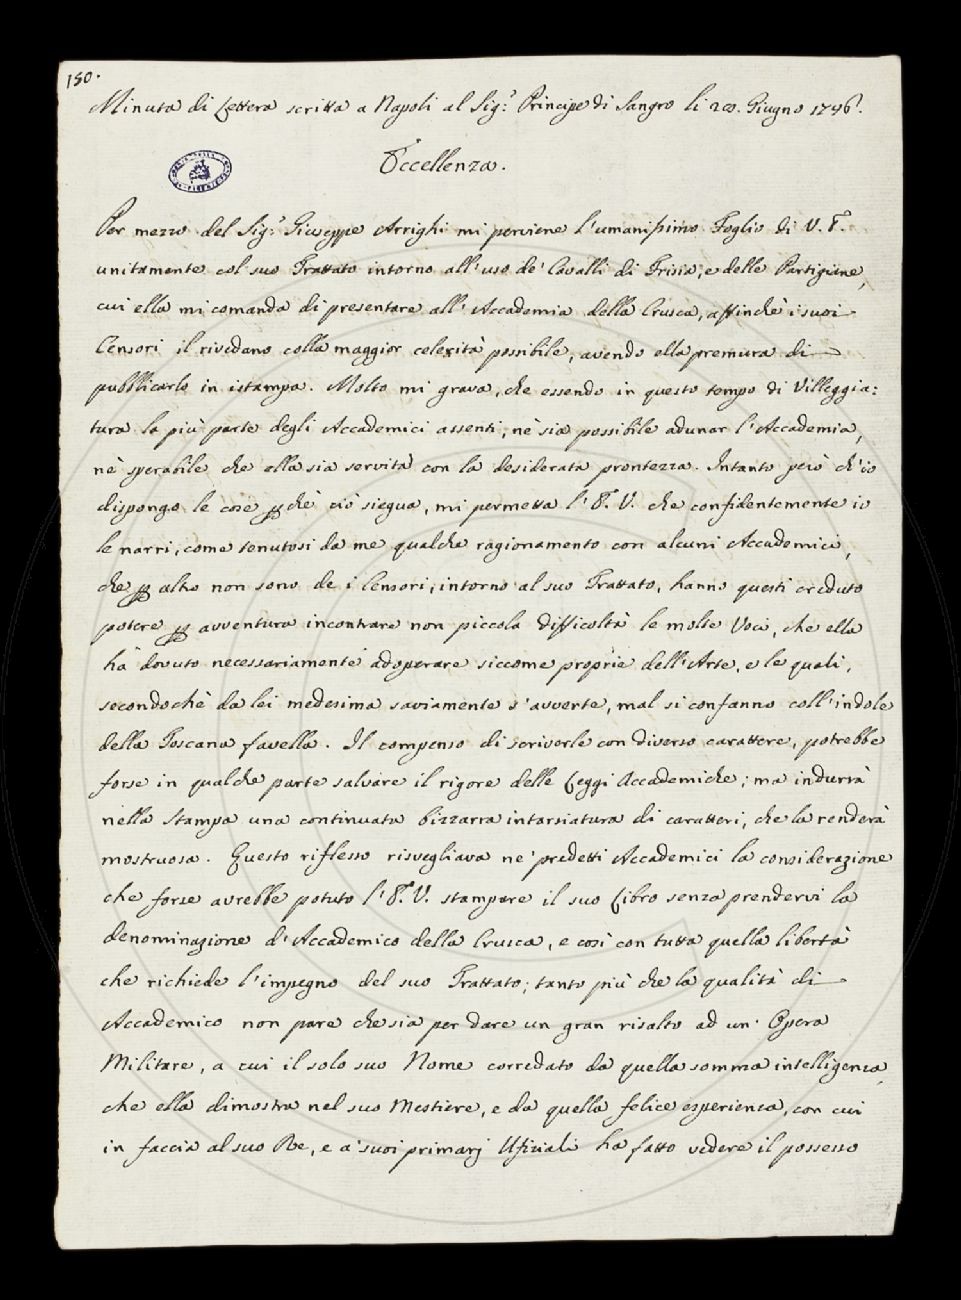 150.
Minuta di Lettera scritta a Napoli al Sig.r Principe di Sangro li 20. Giugno 1746.
Eccellenza.
Per mezzo del Sig.r Giuseppe Arrighi mi perviene l'umanissimo Foglio di V. E.
unitamente col suo Trattato intorno all'uso de' Cavalli di Frisia, e delle Partigiane,
cui ella mi comanda di presentare all'Accademia della Crusca, affinchè i suoi
Censori il rivedano colla maggior celerità possibile, avendo ella premura di
pubblicarlo in istampa. Molto mi grava, che essendo in questo tempo di Villeggia:
tura la più parte degli Accademici assenti, nè sia possibile adunar l'Accademia,
nè sperabile che ella sia servita con la desiderata prontezza. Intanto però ch'io
dispongo le cose pchè ciò siegua, mi permetta l'E. V. che confidentemente io
le narri, come tenutosi da me qualche ragionamento con alcuni Accademici,
che p altro non sono de i Censori, intorno al suo Trattato, hanno questi creduto
potere p avventura incontrare non piccola difficoltà le molte Voci, che ella
ha dovuto necessariamente adoperare siccome proprie dell'Arte, e le quali,
secondochè da lei medesima saviamente s'avverte, mal si confanno coll'indole
della Toscana favella. Il compenso di scriverle con diverso carattere, potrebbe
forse in qualche parte salvare il rigore delle Leggi Accademiche; ma indurrà
nella Stampa una continuata bizzarra intarsiatura di caratteri, che la renderà
mostruosa. Questo riflesso risvegliava ne' predetti Accademici la considerazione
che forse avrebbe potuto l'E. V. stampare il suo Libro senza prendervi la
denominazione d'Accademico della Crusca, e così con tutta quella libertà
che richiede l'impegno del suo Trattato; tanto più che la qualità di
Accademico non pare che sia per dare un gran risalto ad un' Opera
Militare, a cui il solo suo Nome corredato da quella somma intelligenza,
che ella dimostra nel suo Mestiere, e da quella felice esperienza, con cui
in faccia al suo Re, e a' suoi primarj Ufiziali ha fatto vedere il possesso